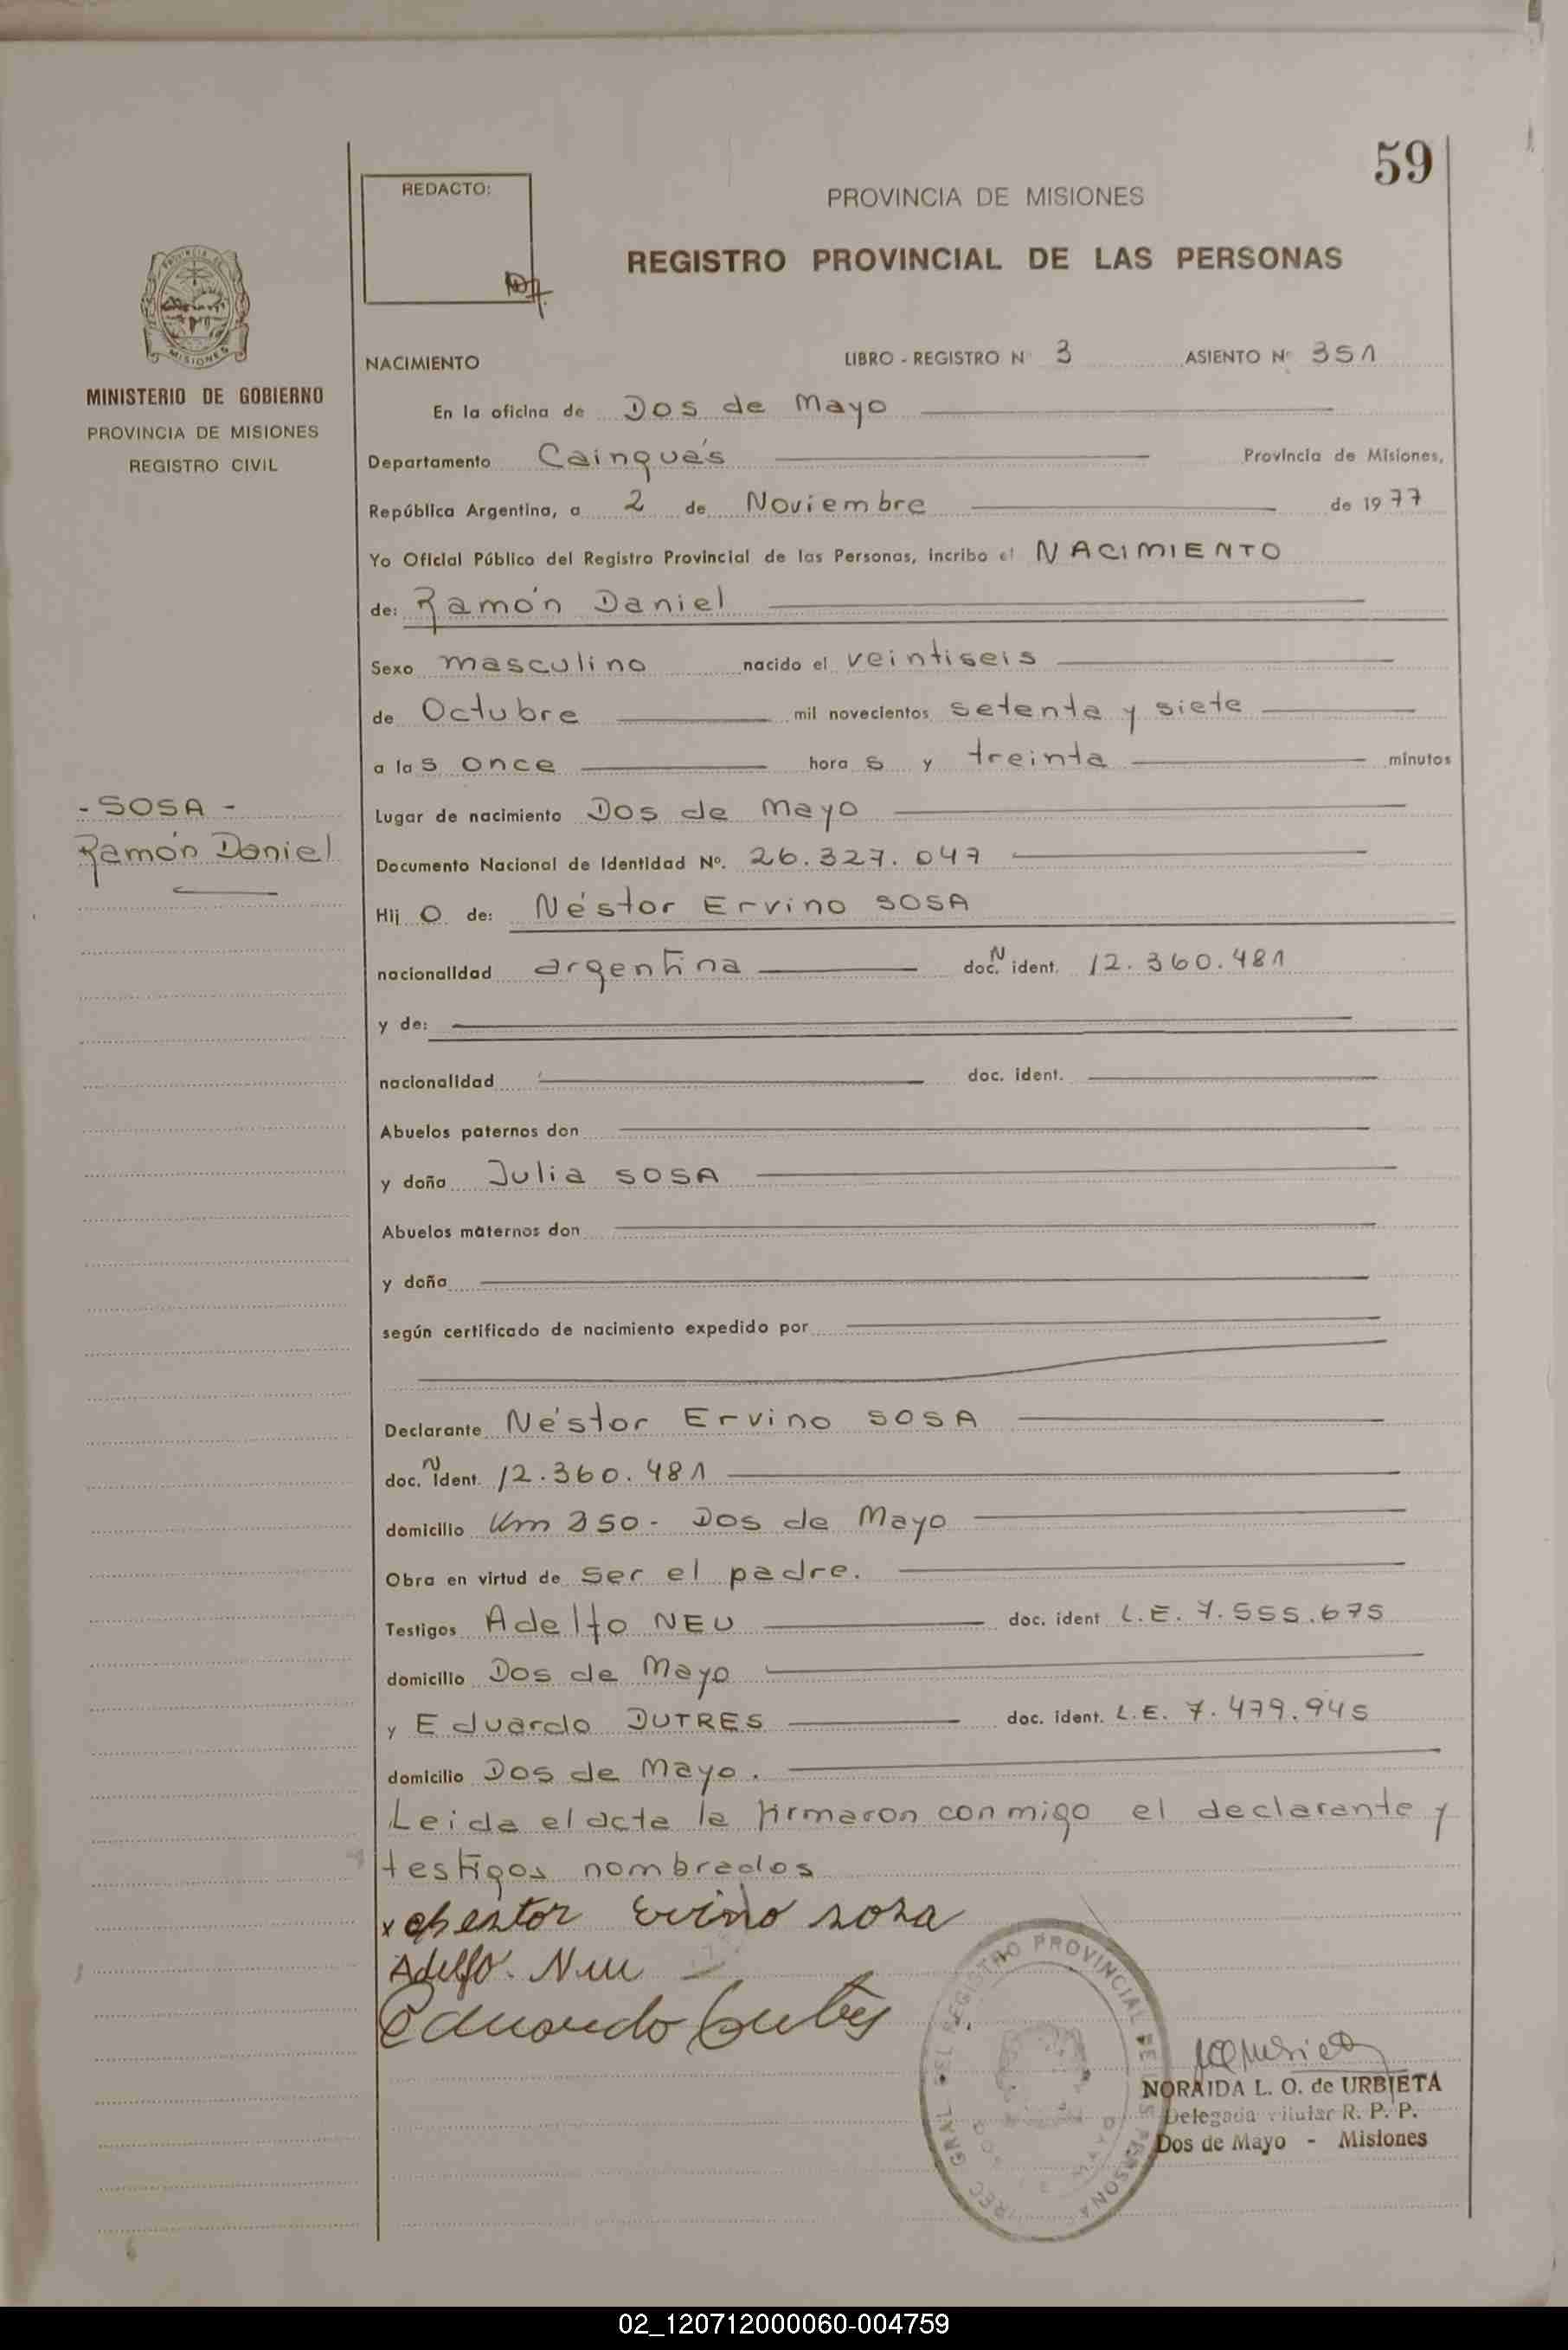 59
REDACTO:
PROVINCIA DE MISIONES
REGISTRO PROVINCIAL DE LAS PERSONAS
MISIONES
MINISTERIO DE GOBIERNO
PROVINCIA DE MISIONES
REGISTRO CIVIL
NACIMIENTO LIBRO - REGISTRO Nº 3 ASIENTO Nº 351
En la oficina de Dos de Mayo
Departamento Cainguás Provincia de Misiones,
República Argentina, a 2 de Noviembre de 1977
Yo Oficial Público del Registro Provincial de las Personas, incribo el NACIMIENTO
de: Ramón Daniel
Sexo masculino nacido el veintiseis
de Octubre mil novecientos setenta y siete
a las once horas y treinta minutos
- SOSA -
Ramón Daniel
Lugar de nacimiento Dos de Mayo
Documento Nacional de Identidad Nº. 26.327.047
Hijo de: Néstor Ervino SOSA
nacionalidad argentina doc. N ident. 12.360.481
y de:
nacionalidad doc. ident.
Abuelos paternos don
y doña Julia SOSA
Abuelos maternos don
y doña
según certificado de nacimiento expedido por
Declarante Néstor Ervino SOSA
doc. N ident. 12.360.481
domicilio Km 250 - Dos de Mayo
Obra en virtud de ser el padre.
Testigos Adelfo NEU doc. ident L.E. 7.555.675
domicilio Dos de Mayo
y Eduardo DUTRES doc. ident. L.E. 7.479.945
domicilio Dos de Mayo.
Leida el acta la firmaron conmigo el declarante y
testigos nombrados
x Nestor Ervino sosa
Adelfo. Neu
Eduardo
REGISTRO PROVINCIAL DE LAS PERSONAS
NORAIDA L. O. de URBIETA
Delegada Titular R. P. P.
Dos de Mayo - Misiones
02_120712000060-004759